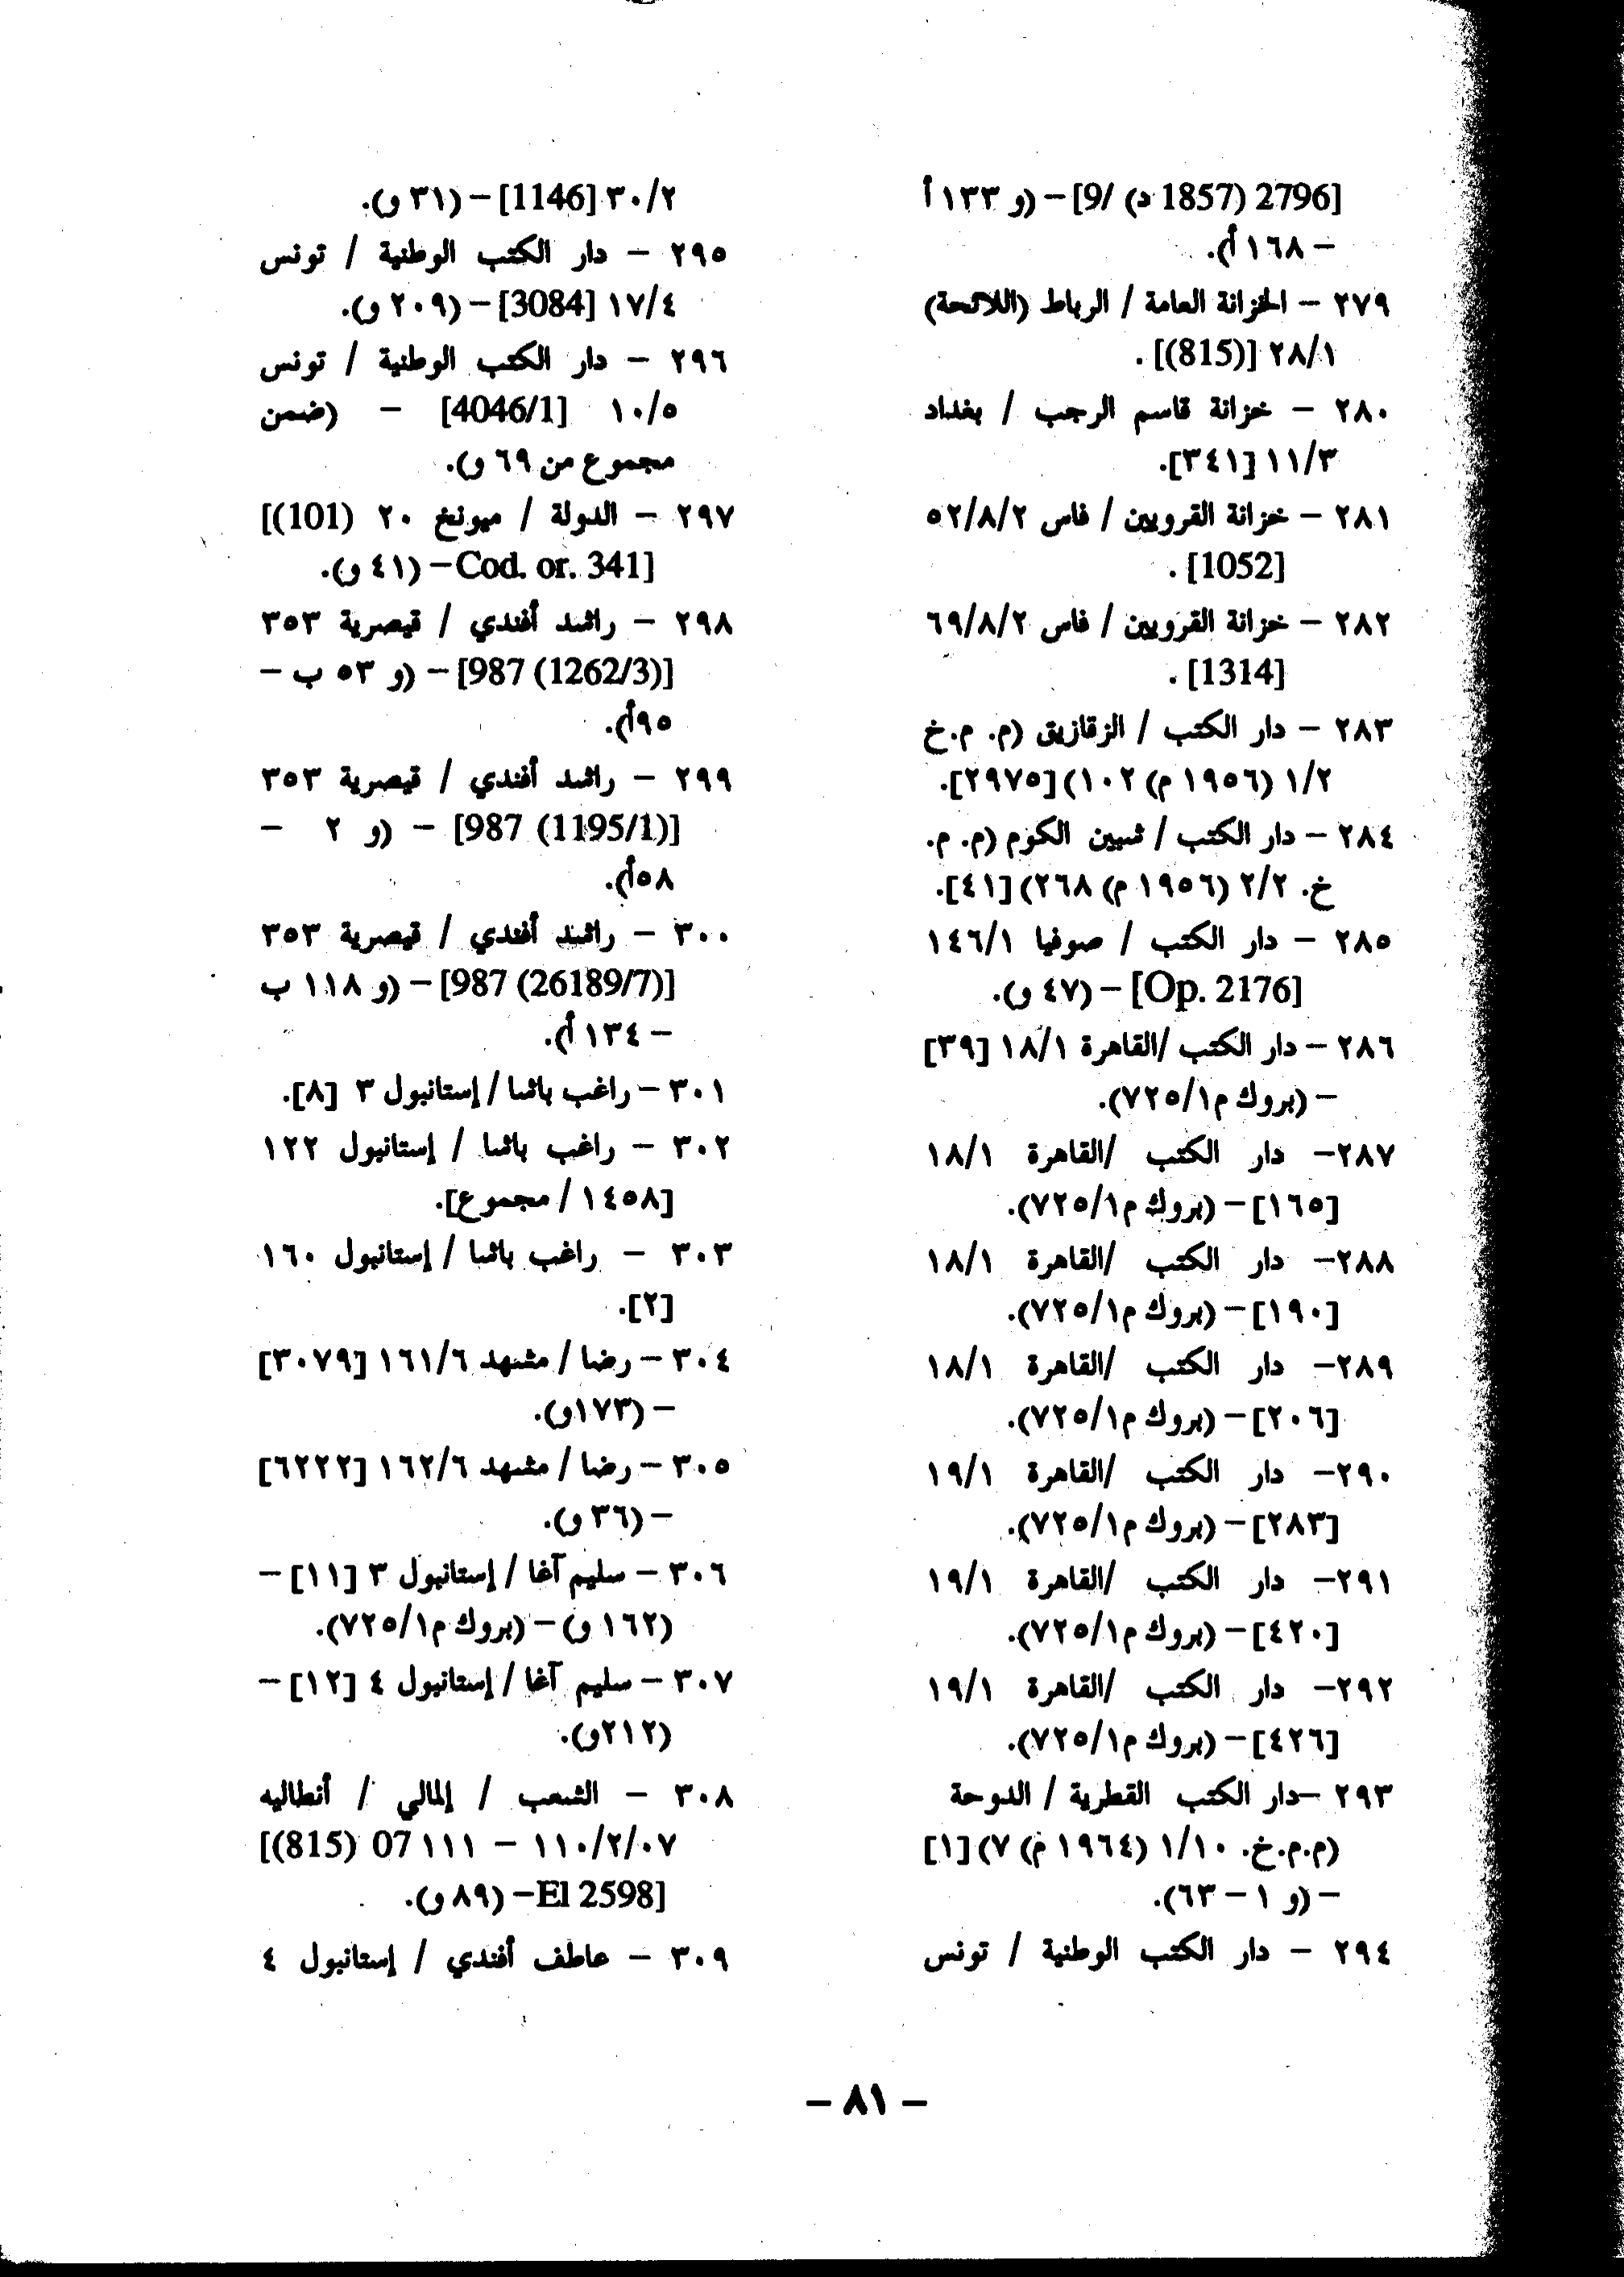 [2796 (1857 د) /9] – (و ١٣٣ أ
– ١٦٨ أ).
٢٧٩ – الخزانة العامة / الرباط (اللائحة)
٢٨/١ [(815)] .
٢٨٠ – خزانة قاسم الرجب / بغداد
١١/٣ [٣٤١].
٢٨١ – خزانة القرويين / فاس ٥٢/٨/٢
[1052] .
٢٨٢ – خزانة القرويين / فاس ٦٩/٨/٢
[1314] .
٢٨٣ – دار الكتب / الزقازيق (م. م.خ
١/٢ (١٩٥٦ م) ١٠٢) [٢٩٧٥].
٢٨٤ – دار الكتب / شبين الكوم (م. م.
خ. ٢/٢ (١٩٥٦ م) ٢٦٨) [٤١].
٢٨٥ – دار الكتب / صوفيا ١٤٦/١
[Op. 2176] – (٤٧ و).
٢٨٦ – دار الكتب /القاهرة ١٨/١ [٣٩]
– (بروك م٧٢٥/١).
٢٨٧– دار الكتب /القاهرة ١٨/١
[١٦٥] – (بروك م٧٢٥/١).
٢٨٨– دار الكتب /القاهرة ١٨/١
[١٩٠] – (بروك م٧٢٥/١).
٢٨٩– دار الكتب /القاهرة ١٨/١
[٢٠٦] – (بروك م٧٢٥/١).
٢٩٠– دار الكتب /القاهرة ١٩/١
[٢٨٣] – (بروك م٧٢٥/١).
٢٩١– دار الكتب /القاهرة ١٩/١
[٤٢٠] – (بروك م٧٢٥/١).
٢٩٢– دار الكتب /القاهرة ١٩/١
[٤٢٦] – (بروك م٧٢٥/١).
٢٩٣ –دار الكتب القطرية / الدوحة
(م.م.خ. ١/١٠ (١٩٦٤ م) ٧) [١]
– (و ١ – ٦٣).
٢٩٤ – دار الكتب الوطنية / تونس
٣٠/٢ [1146] – (٣١ و).
٢٩٥ – دار الكتب الوطنية / تونس
١٧/٤ [3084] – (٢٠٩ و).
٢٩٦ – دار الكتب الوطنية / تونس
١٠/٥ [4046/1] – (ضمن
مجموع من ٦٩ و).
٢٩٧ – الدولة / ميونخ ٢٠ (101)]
[Cod. or. 341– (٤١ و).
٢٩٨ – راشد أفندي / قيصرية ٣٥٣
[987 (1262/3)] – (و ٥٣ ب –
٩٥أ).
٢٩٩ – راشد أفندي / قيصرية ٣٥٣
[987 (1195/1)] – (و ٢ –
٥٨أ).
٣٠٠ – راشد أفندي / قيصرية ٣٥٣
[987 (26189/7)] – (و ١١٨ ب
– ١٣٤ أ).
٣٠١ – راغب باشا / إستانبول ٣ [٨].
٣٠٢ – راغب باشا / إستانبول ١٢٢
[١٤٥٨ / مجموع].
٣٠٣ – راغب باشا / إستانبول ١٦٠
[٢].
٣٠٤ – رضا / مشهد ١٦١/٦ [٣٠٧٩]
– (١٧٣و).
٣٠٥ – رضا / مشهد ١٦٢/٦ [٦٢٢٢]
– (٣٦ و).
٣٠٦ – سليم آغا / إستانبول ٣ [١١] –
(١٦٢ و) – (بروك م٧٢٥/١).
٣٠٧ – سليم آغا / إستانبول ٤ [١٢] –
(٢١٢و).
٣٠٨ – الشعب / إلمالي / أنطاليه
١١٠/٢/٠٧ – ١١١ 07 (815)]
[El 2598– (٨٩ و).
٣٠٩ – عاطف أفندي / إستانبول ٤
– ٨١ –